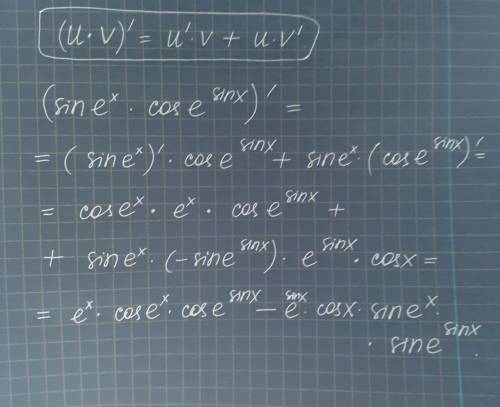 (u·v)' = u'·v + u·v'
(sin eˣ · cos e^sinx)' =
= (sin eˣ)' · cos e^sinx + sin eˣ · (cos e^sinx)' =
= cos eˣ · eˣ · cos e^sinx +
+ sin eˣ · (-sin e^sinx) · e^sinx · cosx =
= eˣ · cos eˣ · cos e^sinx - e^sinx · cosx · sin eˣ ·
· sin e^sinx.